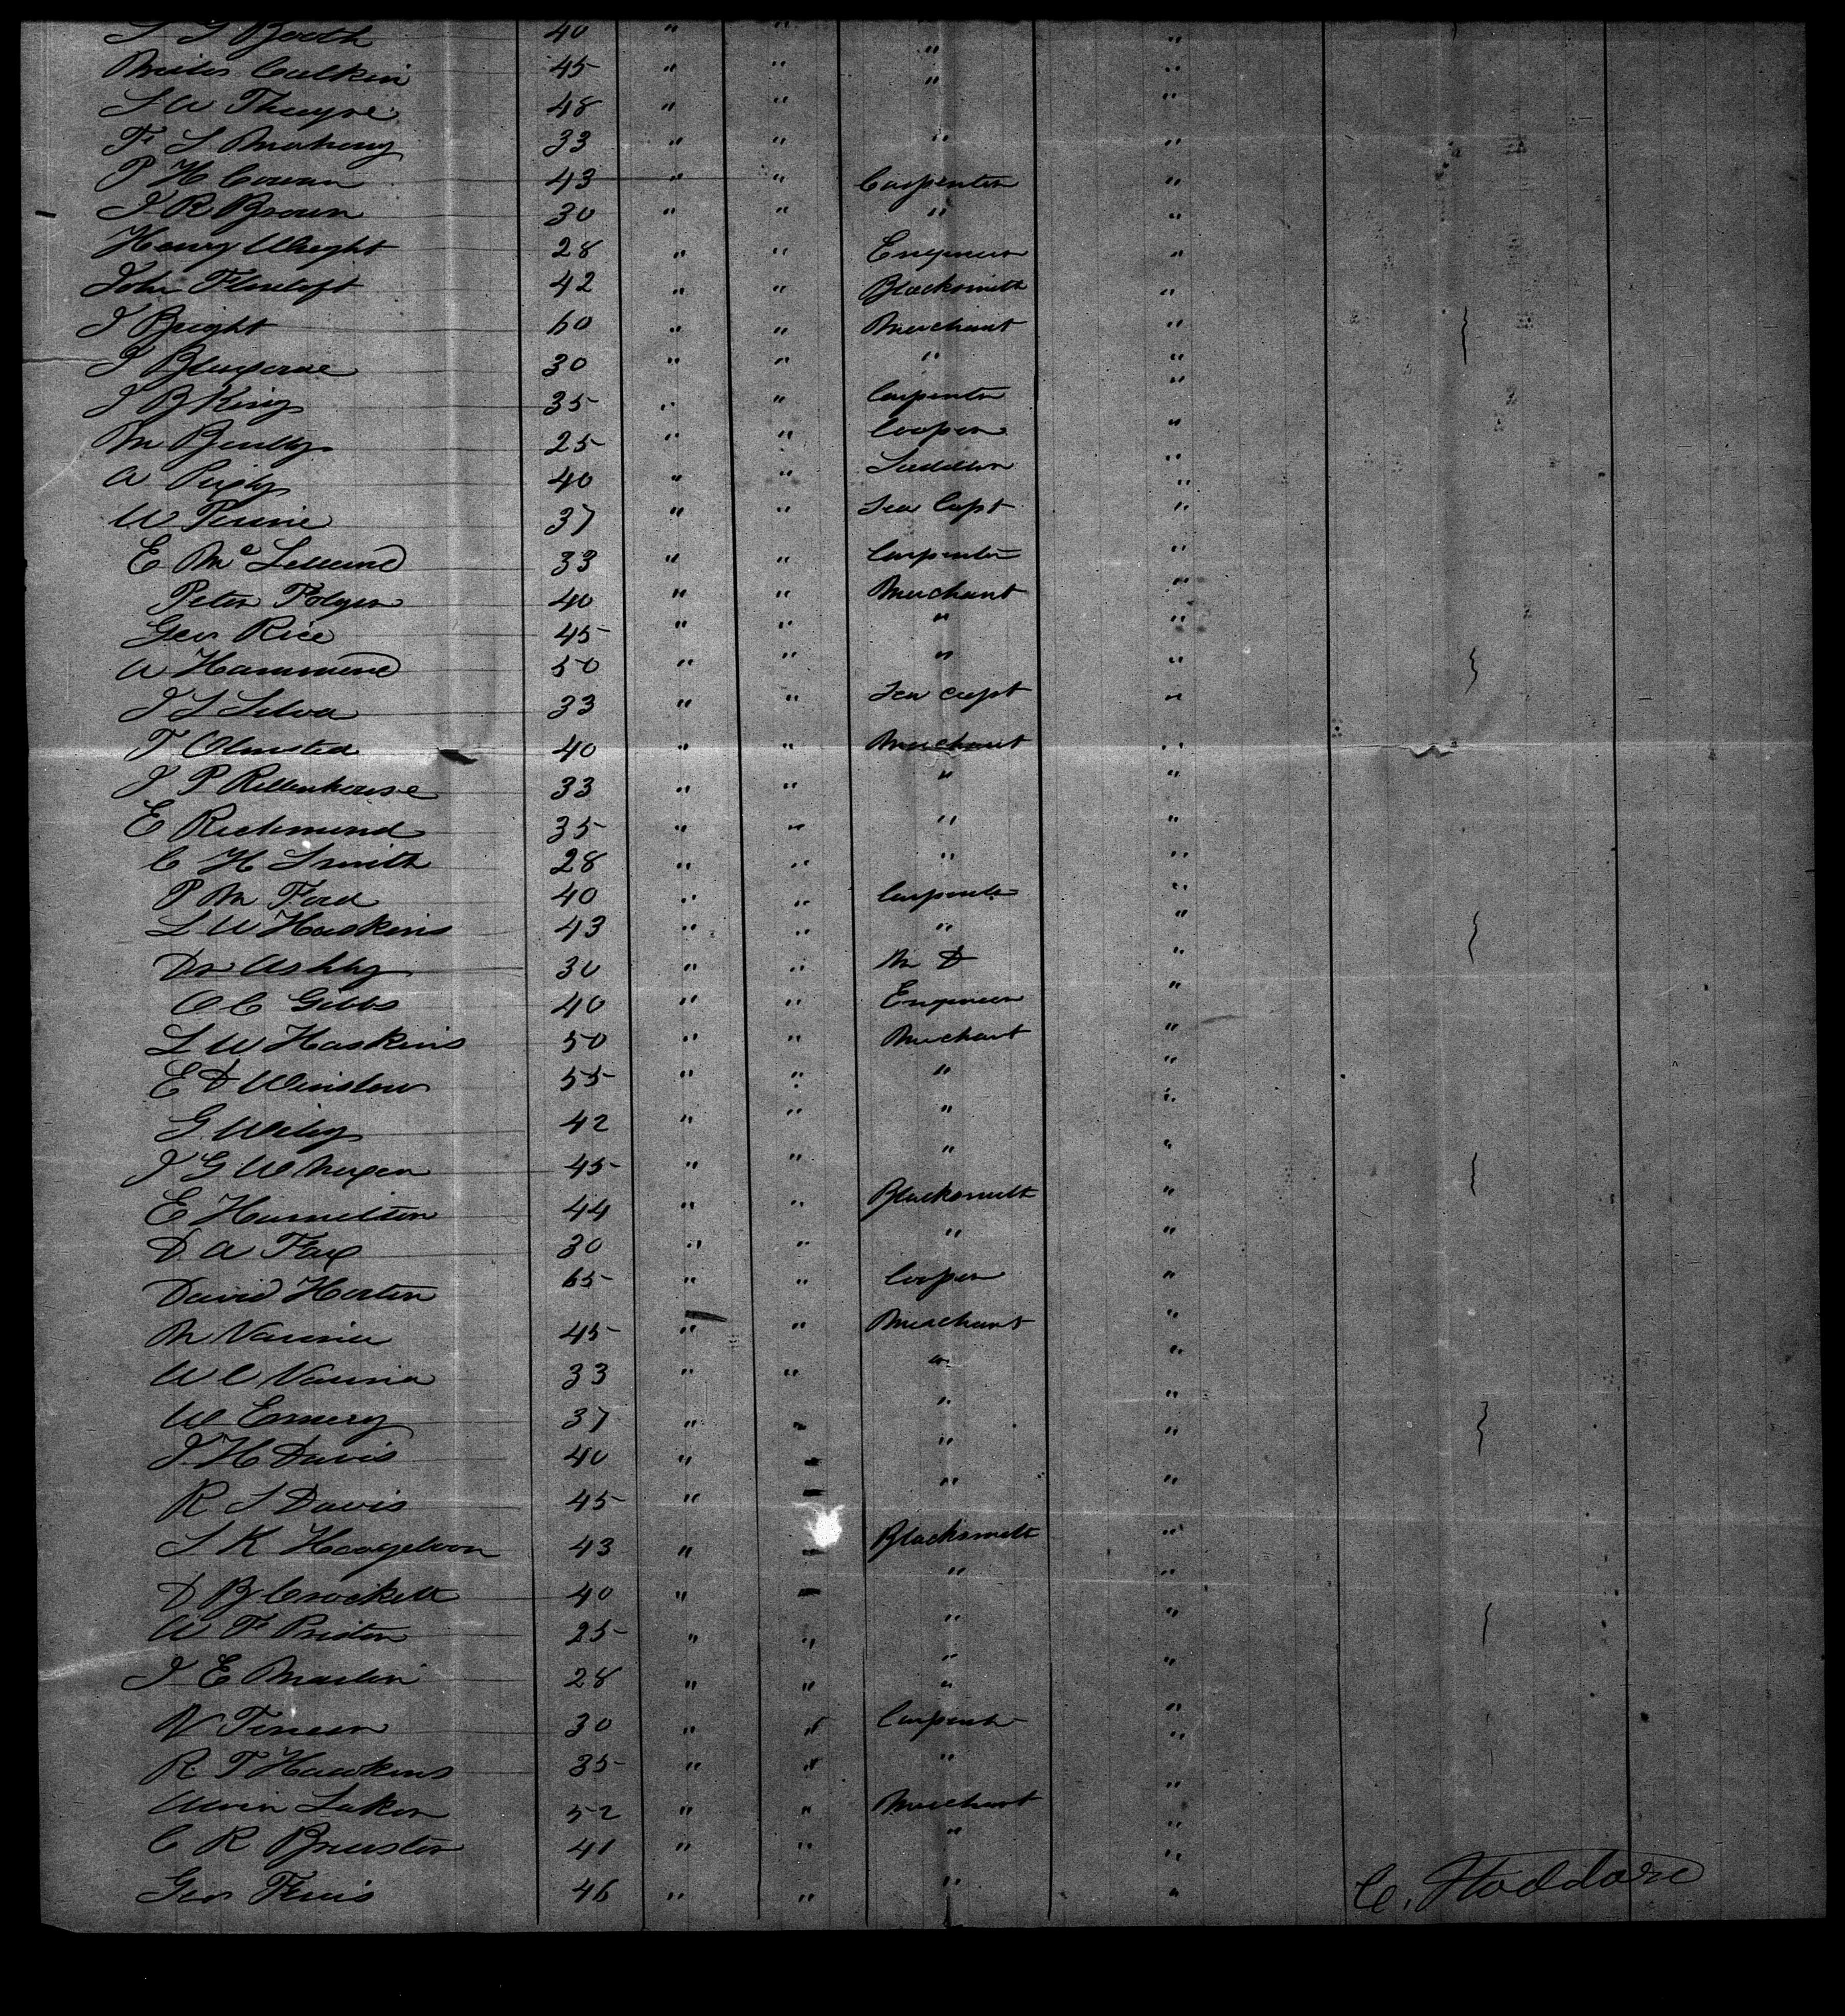 Booth 40 " " " "
Miles Calkin 45 " " " "
L W Thayre 48 " " "
F S Mahony 33 " " " "
P H Cowan 43 " " Carpenter "
J R Brown 30 " " " "
Henry Wright 28 " " Engineer "
John 42 " " Blacksmith "
J Bright 60 " " Merchant "
J 30 " " " "
J B King 35 " " Carpenter "
M 25 " " Cooper "
A 40 " " Saddler "
W 37 " " Sea Capt "
E Mc Lelland 33 " " Carpenter "
Peter Folger 40 " " Merchant "
Geo Rice 45 " " " "
A Hammond 50 " " " "
J S Silva 33 " " Sea capt "
T Olmsted 40 " " Merchant "
J P Rittenhouse 33 " " " "
E Richmond 35 " " " "
C H Smith 28 " " " "
P M Ford 40 " " Carpenter "
L W Haskins 43 " " " "
Dr Ashby 30 " " M D "
O C Gibbs 40 " " Engineer "
L W Haskins 50 " " Merchant "
E D Winslow 55 " " " "
G Wiley 42 " " " "
J G W 45 " " " "
E Hamilton 44 " " Blacksmith "
D. A Fax 30 " " " "
David Horton 65 " " Cooper "
M 45 " " Merchant "
W C 33 " " " "
W Emery 37 " " " "
J H Davis 40 " " " "
R S Davis 45 " " "
S K 43 " " Blacksmith "
D B Crockett 40 " " " "
W F Preston 25 " " " "
J E Martin 28 " " " "
N 30 " " Carpenter "
R. T Hawkins 35 " " " "
Alvin Laken 52 " " Merchant "
C R Brewster 41 " " " "
Geo 46 " " " "
C. Stoddard